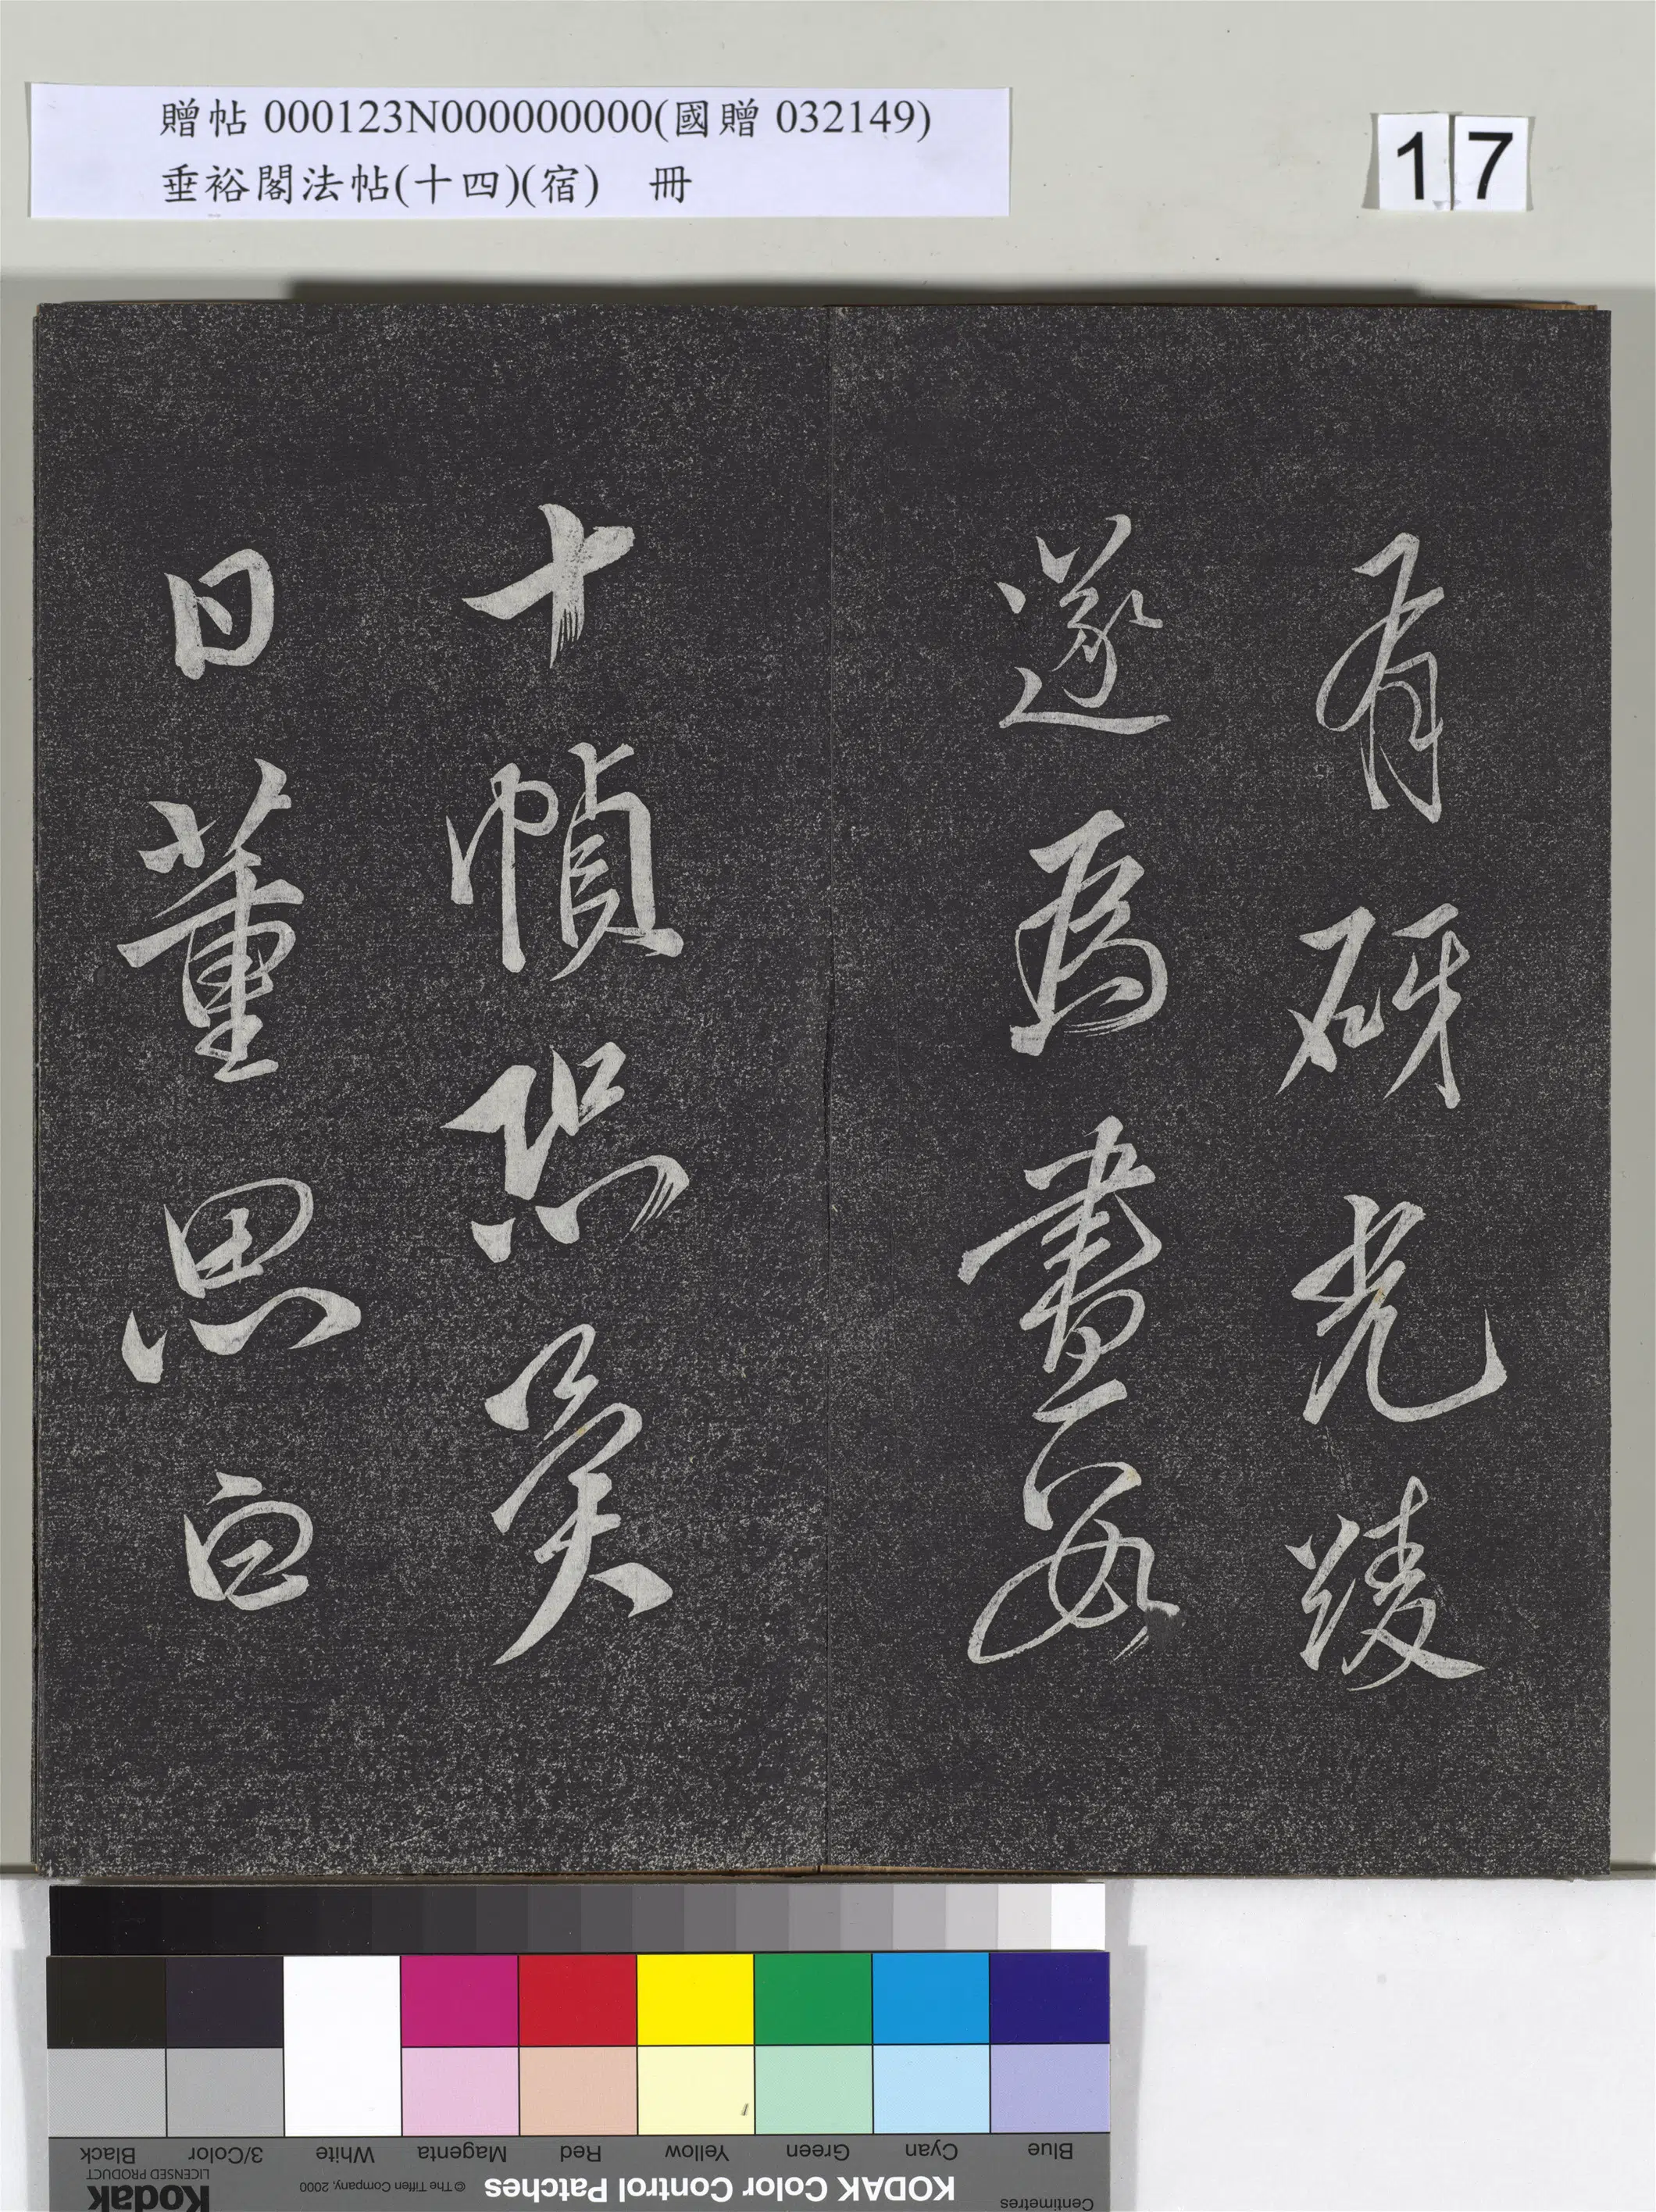 贈帖 000123N000000000(國贈 032149)
垂裕閣法帖(十四)(宿) 冊
17
有砑光綾
遂為書
十幀恐
日董思白
Black
3/Color
White
Magenta
Red
Yellow
Green
Cyan
Blue
Kodak
LICENSED PRODUCT
© The Tiffen Company, 2000
KODAK Color Control Patches
Centimetres